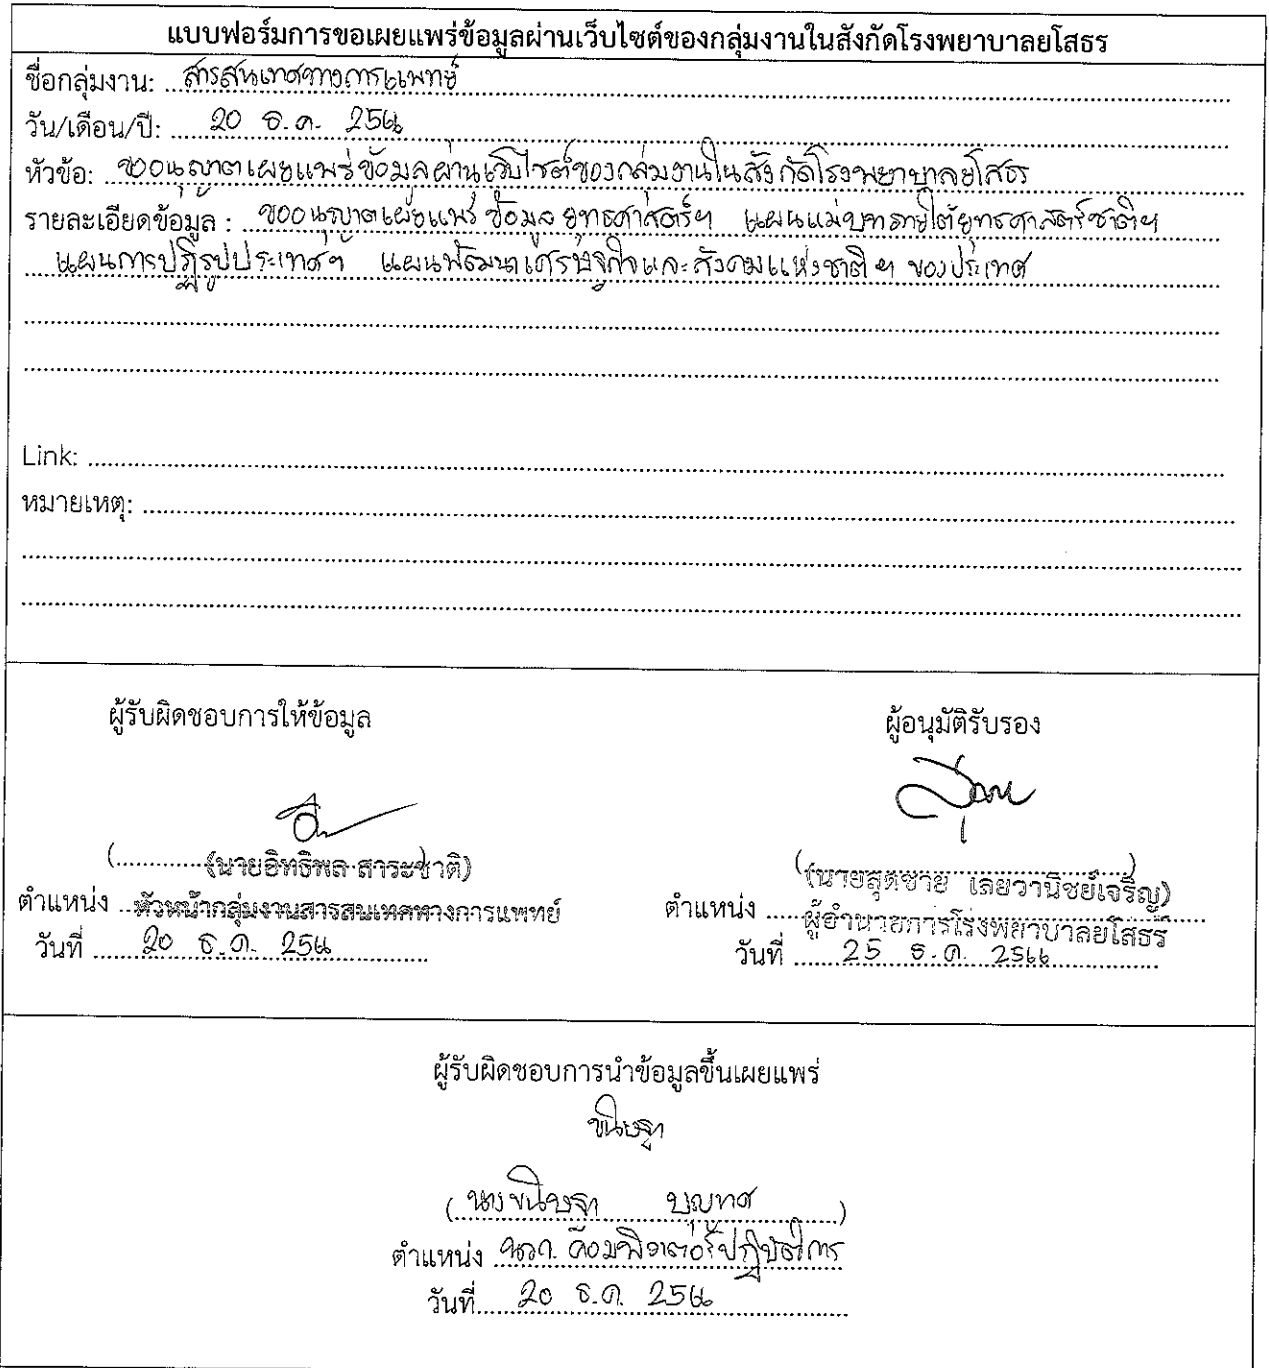 แบบฟอร์มการขอเผยแพร่ข้อมูลผ่านเว็บไซต์ของกลุ่มงานในสังกัดโรงพยาบาลยโสธร
ชื่อกลุ่มงาน: สารสนเทศทางการแพทย์
วัน/เดือน/ปี: 20 ธ.ค. 2566
หัวข้อ: ขออนุญาตเผยแพร่ข้อมูลผ่านเว็บไซต์ของกลุ่มงานในสังกัดโรงพยาบาลยโสธร
รายละเอียดข้อมูล : ขออนุญาตเผยแพร่ ข้อมูล ยุทธศาสตร์ฯ แผนแม่บทภายใต้ยุทธศาสตร์ชาติฯ
แผนการปฏิรูปประเทศฯ แผนพัฒนาเศรษฐกิจและสังคมแห่งชาติ ฯ ของประเทศ
Link:
หมายเหตุ:
ผู้รับผิดชอบการให้ข้อมูล
ผู้อนุมัติรับรอง
(นายอิทธิพล สาระชาติ)
(นายสุดชาย เลยวานิชย์เจริญ)
ตำแหน่ง หัวหน้ากลุ่มงานสารสนเทศทางการแพทย์
ตำแหน่ง ผู้อำนวยการโรงพยาบาลยโสธร
วันที่ 20 ธ.ค. 2566
วันที่ 25 ธ.ค. 2566
ผู้รับผิดชอบการนำข้อมูลขึ้นเผยแพร่
ขนิษฐา
(นางขนิษฐา บุญทศ)
ตำแหน่ง นวก. คอมพิวเตอร์ปฏิบัติการ
วันที่ 20 ธ.ค. 2566